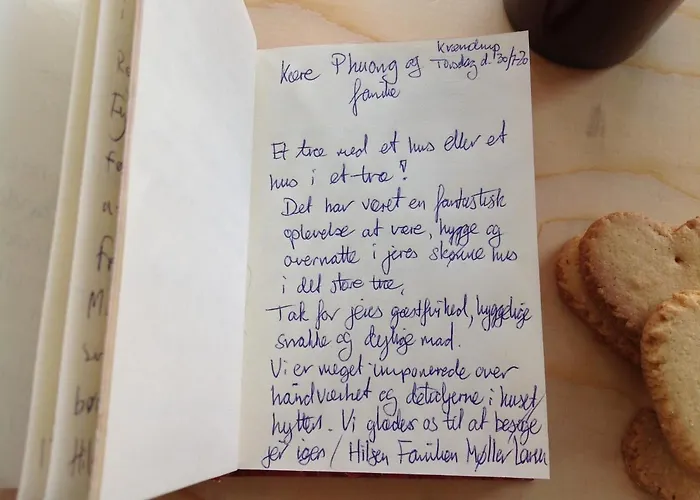 Krændrup
Kære Phuong og Torsdag d. 30/7-20
familie
Et træ med et hus eller et
hus i et træ!
Det har været en fantastisk
oplevelse at være, hygge og
overnatte i jeres skønne hus
i det store træ.
Tak for jeres gæstfrihed, hyggelige
snakke og dejlige mad.
Vi er meget imponerede over
håndværket og detaljerne i huset/
hytten. Vi glæder os til at besøge
jer igen / Hilsen Familien Møller Larsen